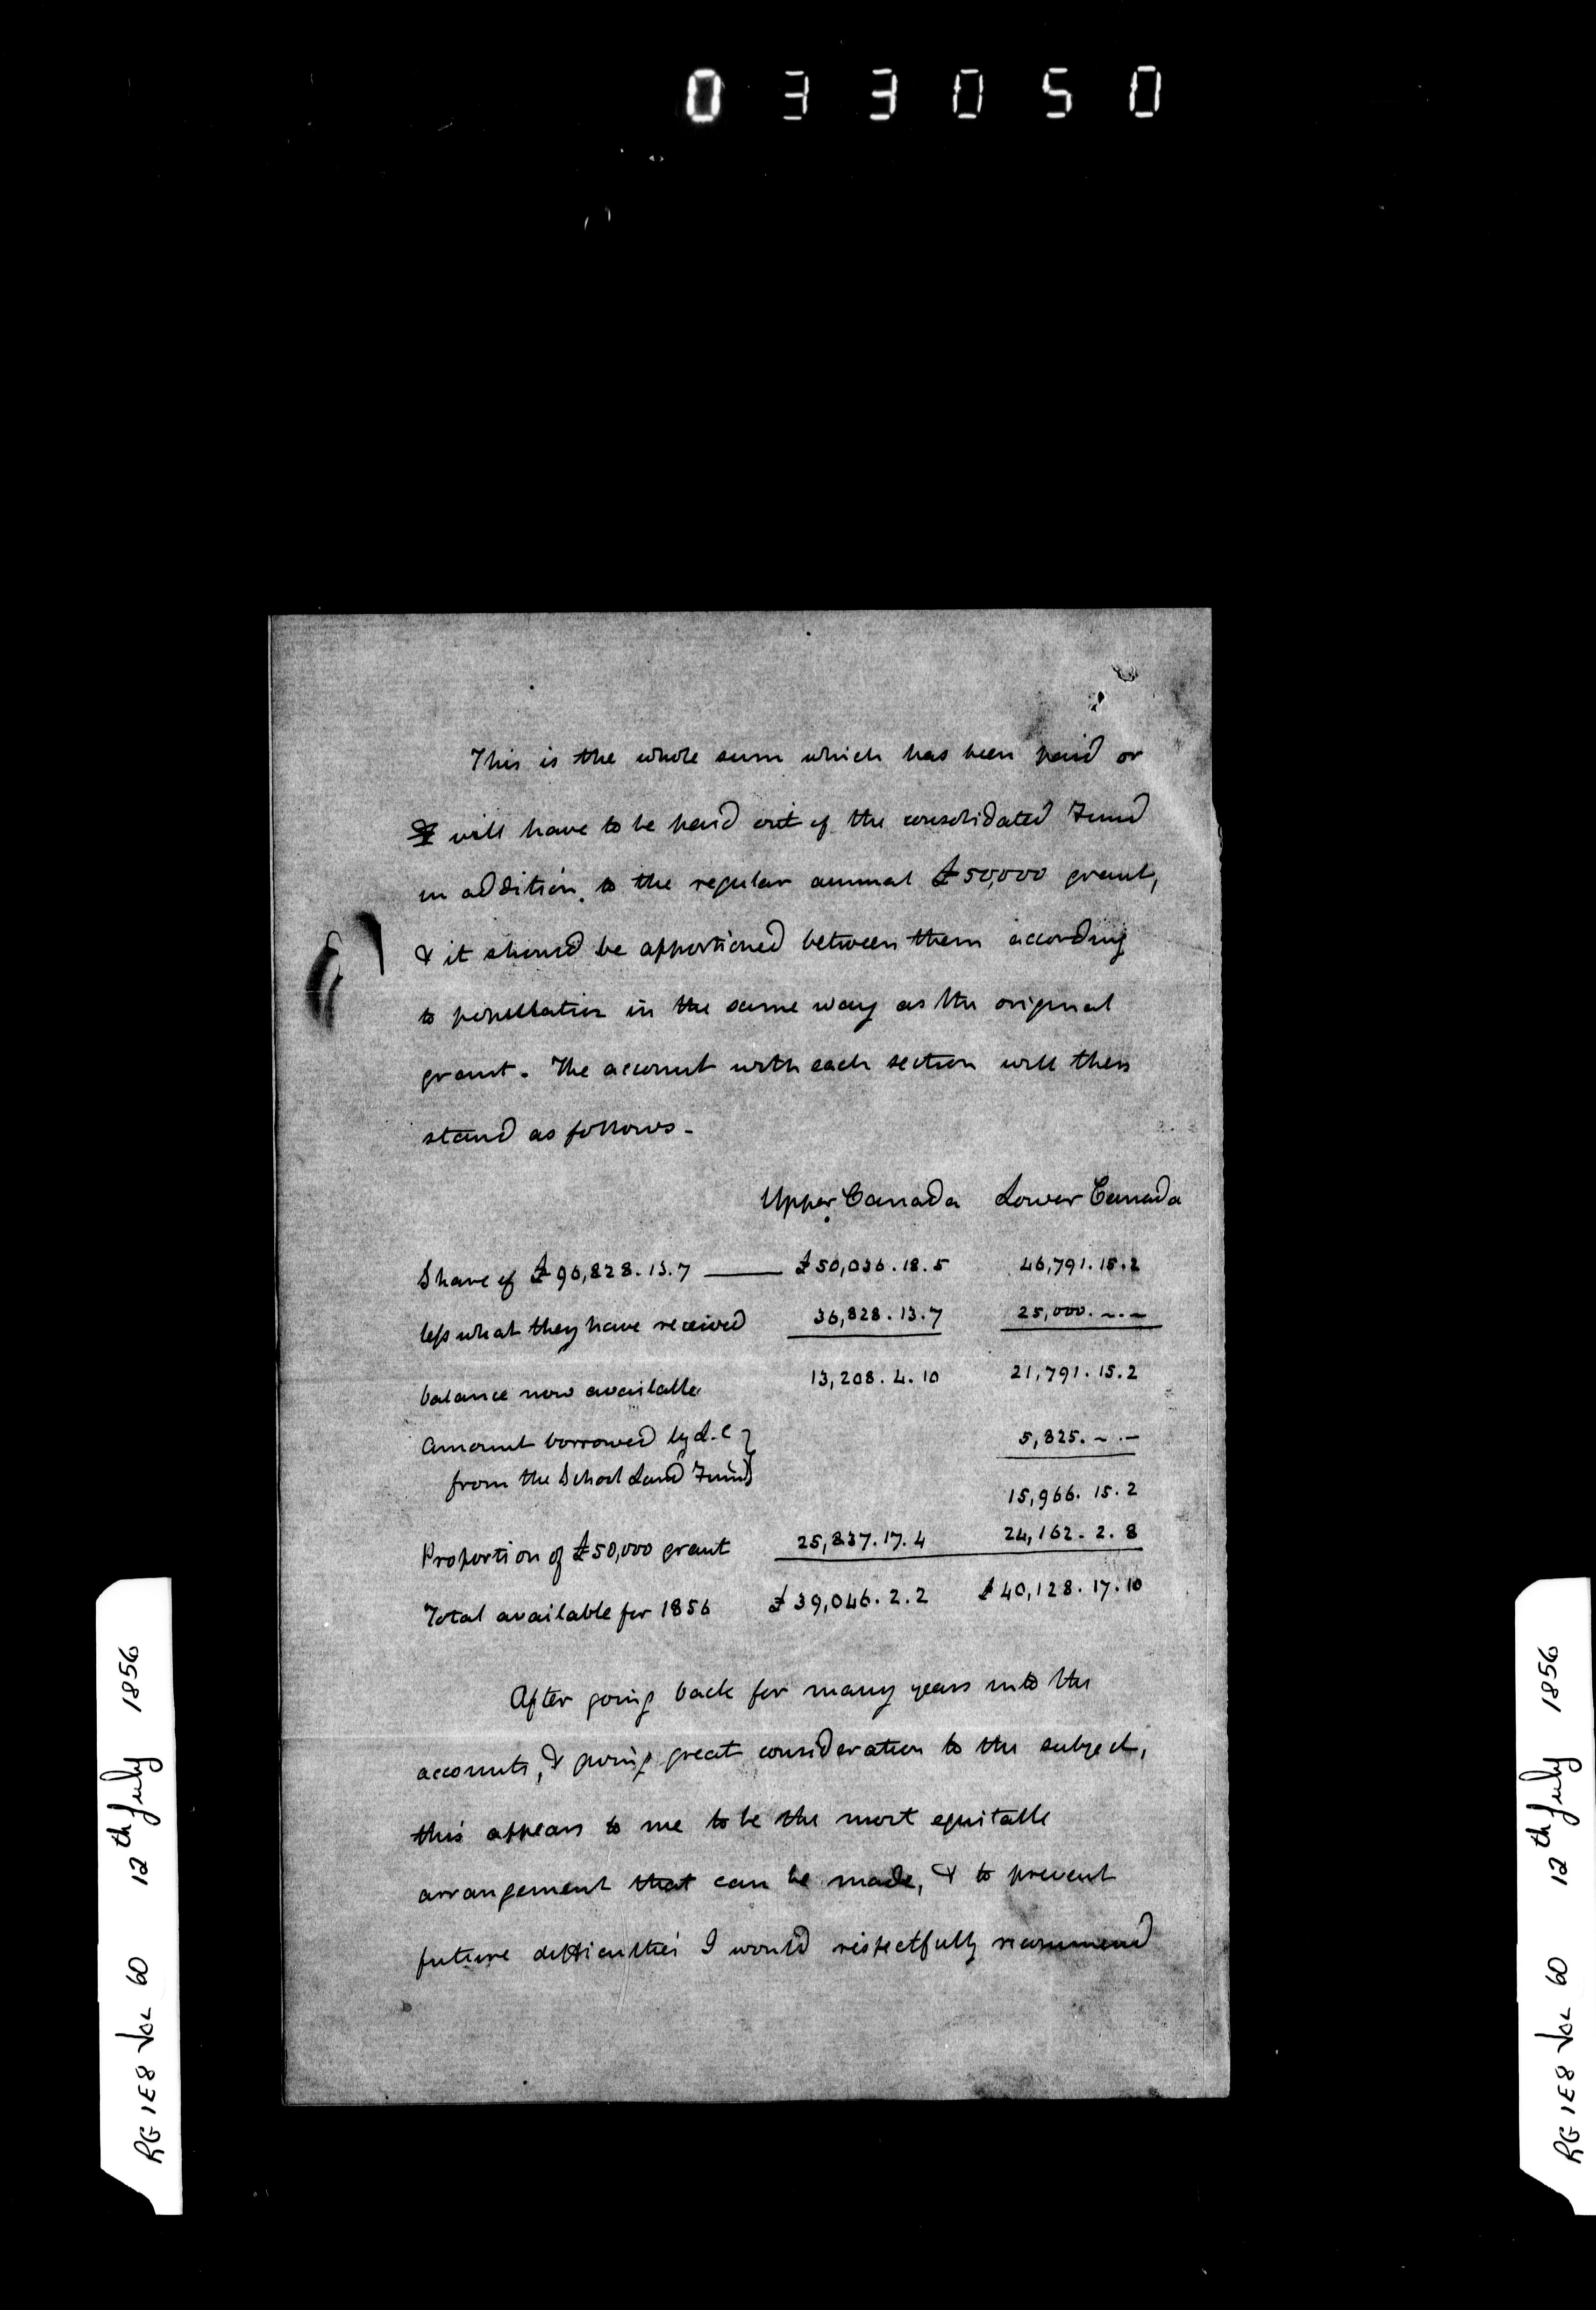 033050
This is the whole sum which has been paid or
will have to be paid out of the consolidated Fund
in addition to the regular annual £50,000 grant,
& it should be apportioned between them according
to popullation in the same way as the original
grant. The account with each section will then
stand as follows-
Upper Canada Lower Canada
Share of £96,828.13.7 £50,036.18.5 46,791.15.2
less what they have received 36,828.13.7 25,000.~.~
balance now available 13,208.4.10 21,791.15.2
Amount borrowed by L.C 5,825.~.~
from the School Land Fund
15,966.15.2
Proportion of £50,000 grant 25,837.17.4 24,162.2.8
Total available for 1856 £39,046.2.2 £40,128.17.10
After going back for many years into the
accounts, & giving great consideration to the subject,
this appears to me to be the most equitable
arrangement that can be made, & to prevent
future difficulties I would respectfully recommend
RG 1E8 Vol 60 12th July 1856
RG 1E8 Vol 60 12th July 1856